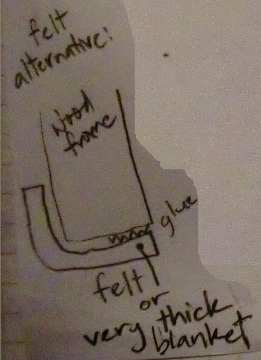 felt
alternative:
wood
frame
glue
felt
or
very thick
blanket